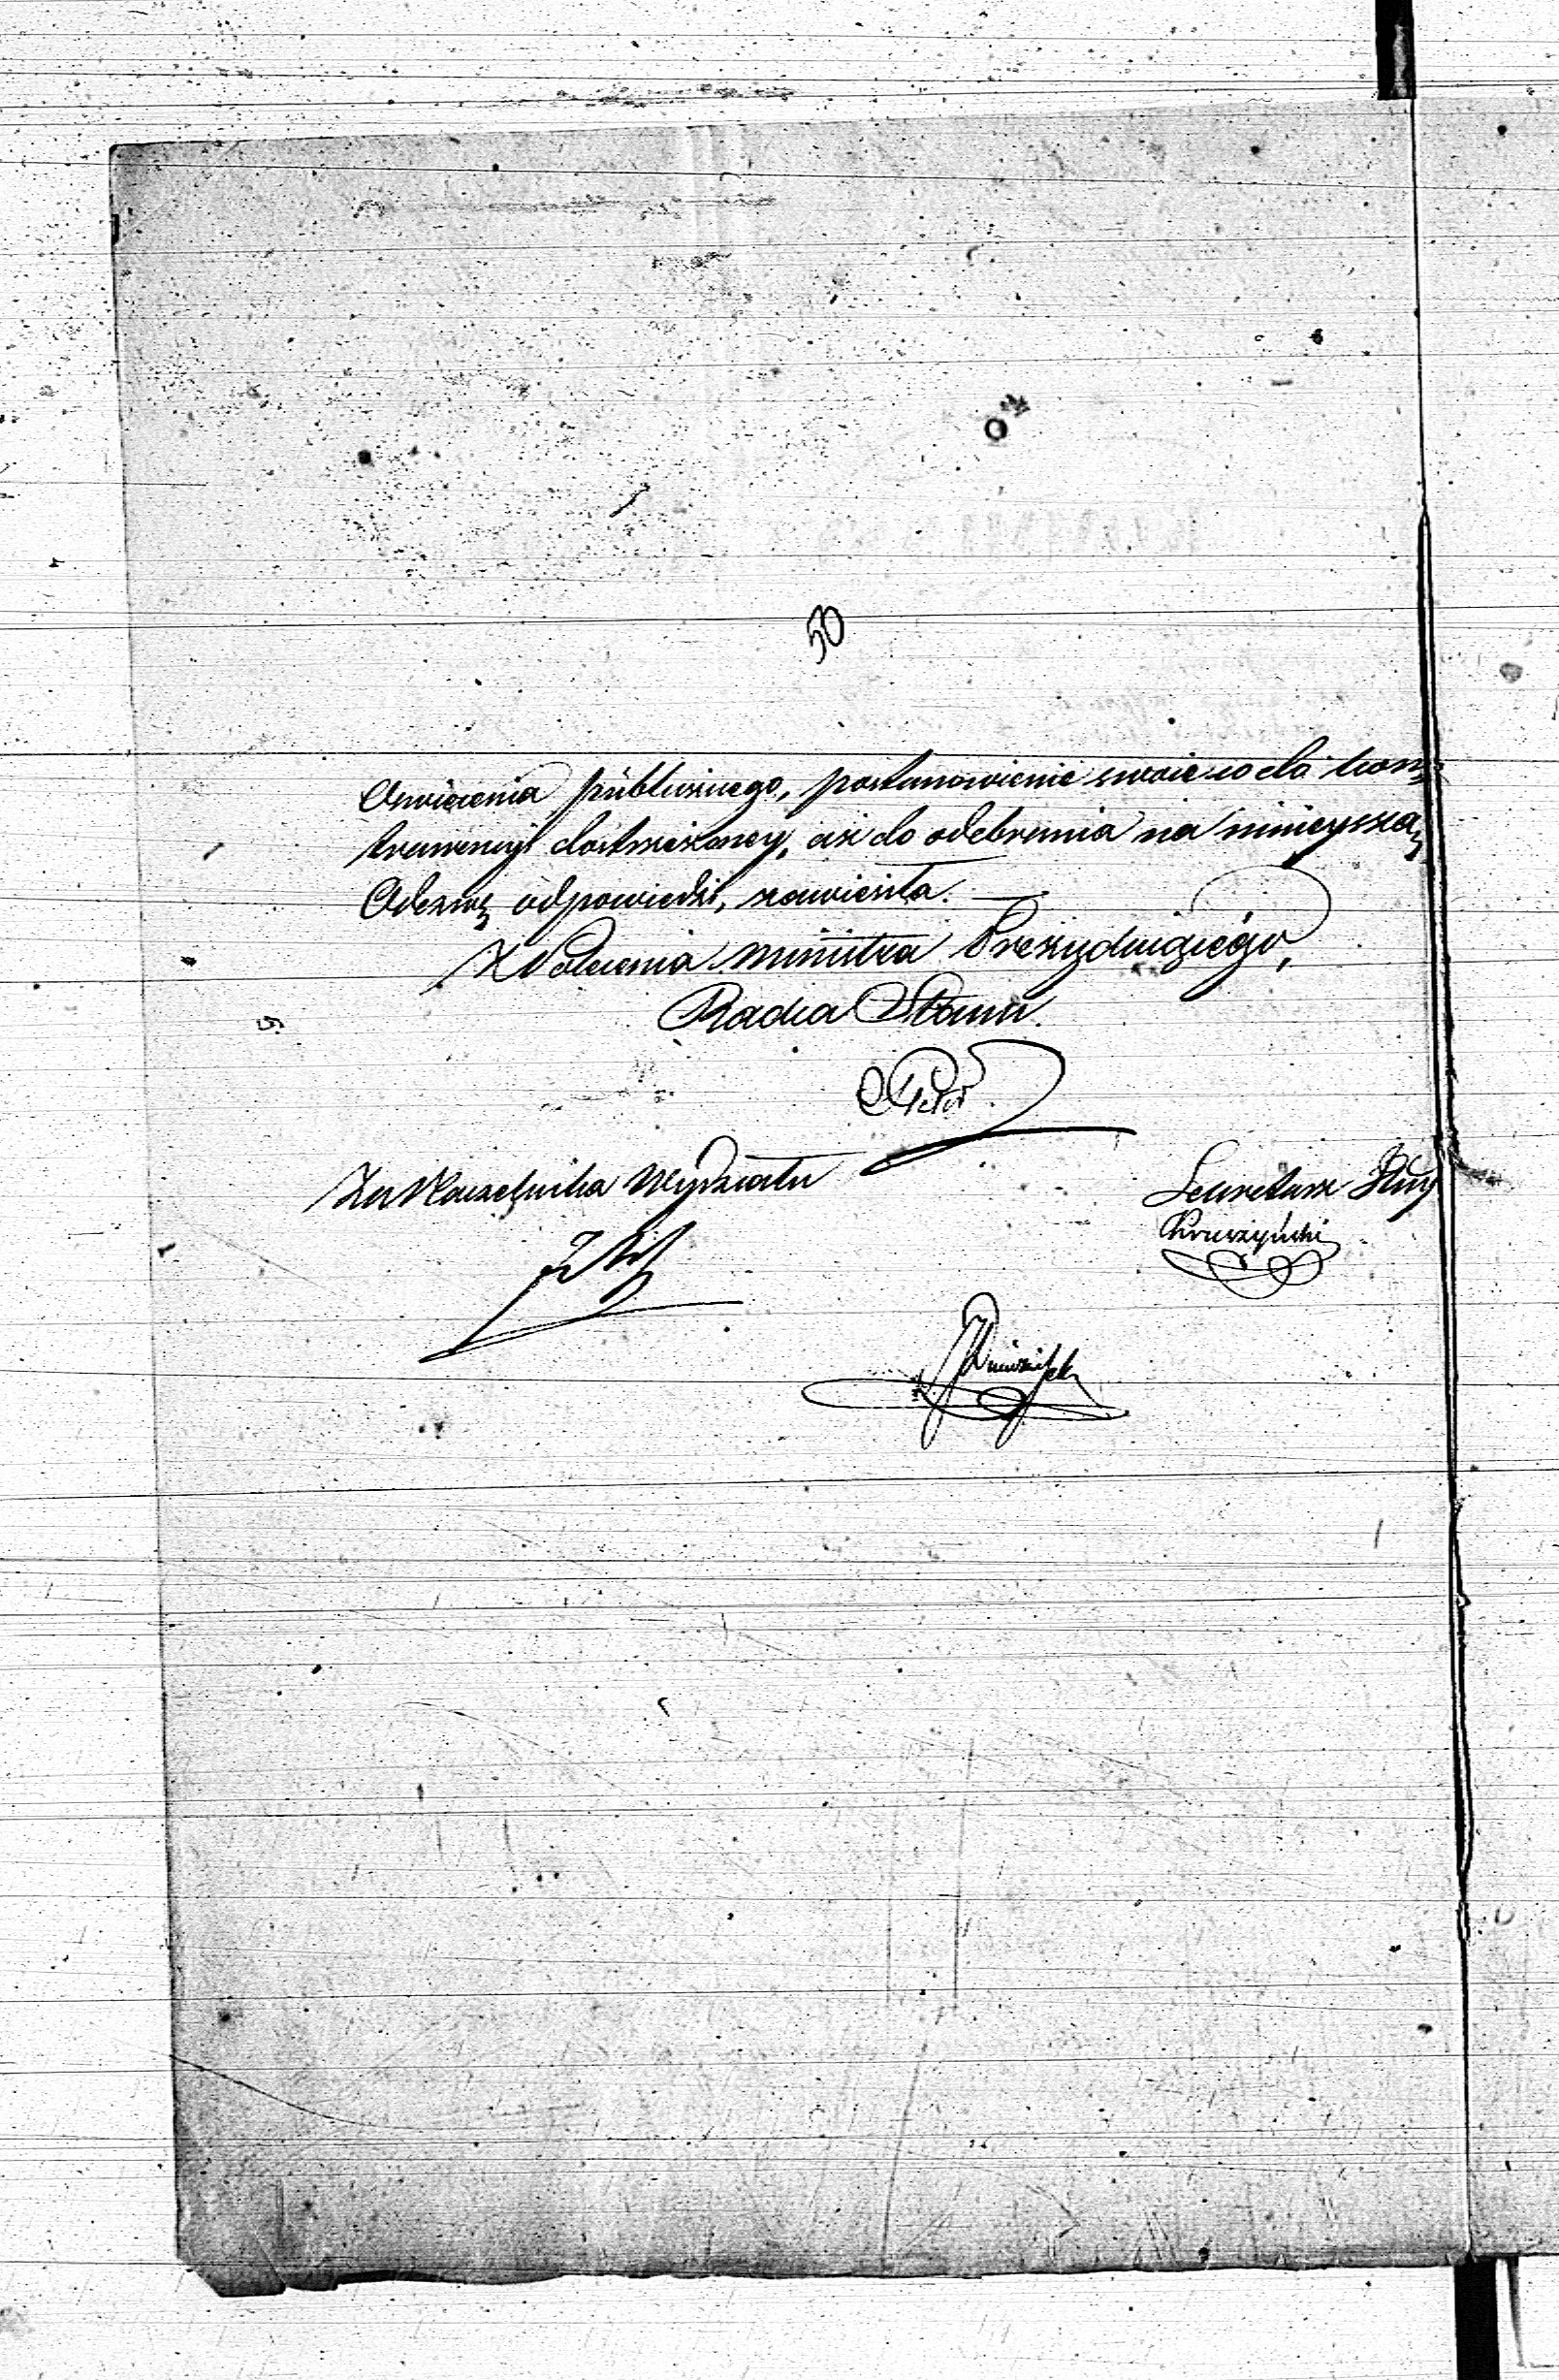 50
Oswiecenia publicznego, postanowienie swoie co do kon=
trawencyi dostrzeżoney, aż do odebrania na ninieyszą
Odezwę odpowiedzi, zawiesiła.
Z Polecenia Ministra Prezyduiącego,
Radca Stanu.
Za Naczelnika Wydziału
Sekretarz Jlny
Kruszyński